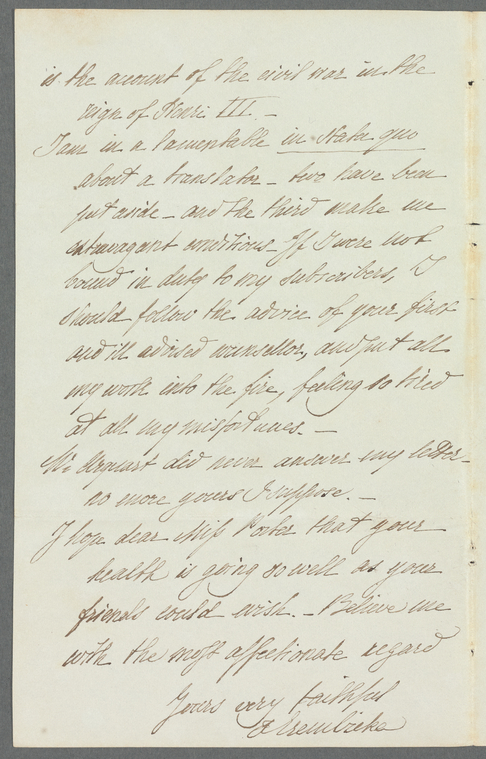 is the account of the civil war in the
reign of Henri III. –
I am in a lamentable in statu quo
about a translator – two have been
put aside – and the third make me
extravagant conditions. If I were not
bound in duty to my subscribers, I
should follow the advice of your first
and ill advised councellor, and put all
my work into the fire, feeling so tired
at all my misfortunes. –
Mr Urquart did never answer my letter –
no more yours I suppose. –
I hope dear Miss Porter that your
health is going so well as your
friends could wish. – Believe me
with the most affectionate regard
Yours very faithful